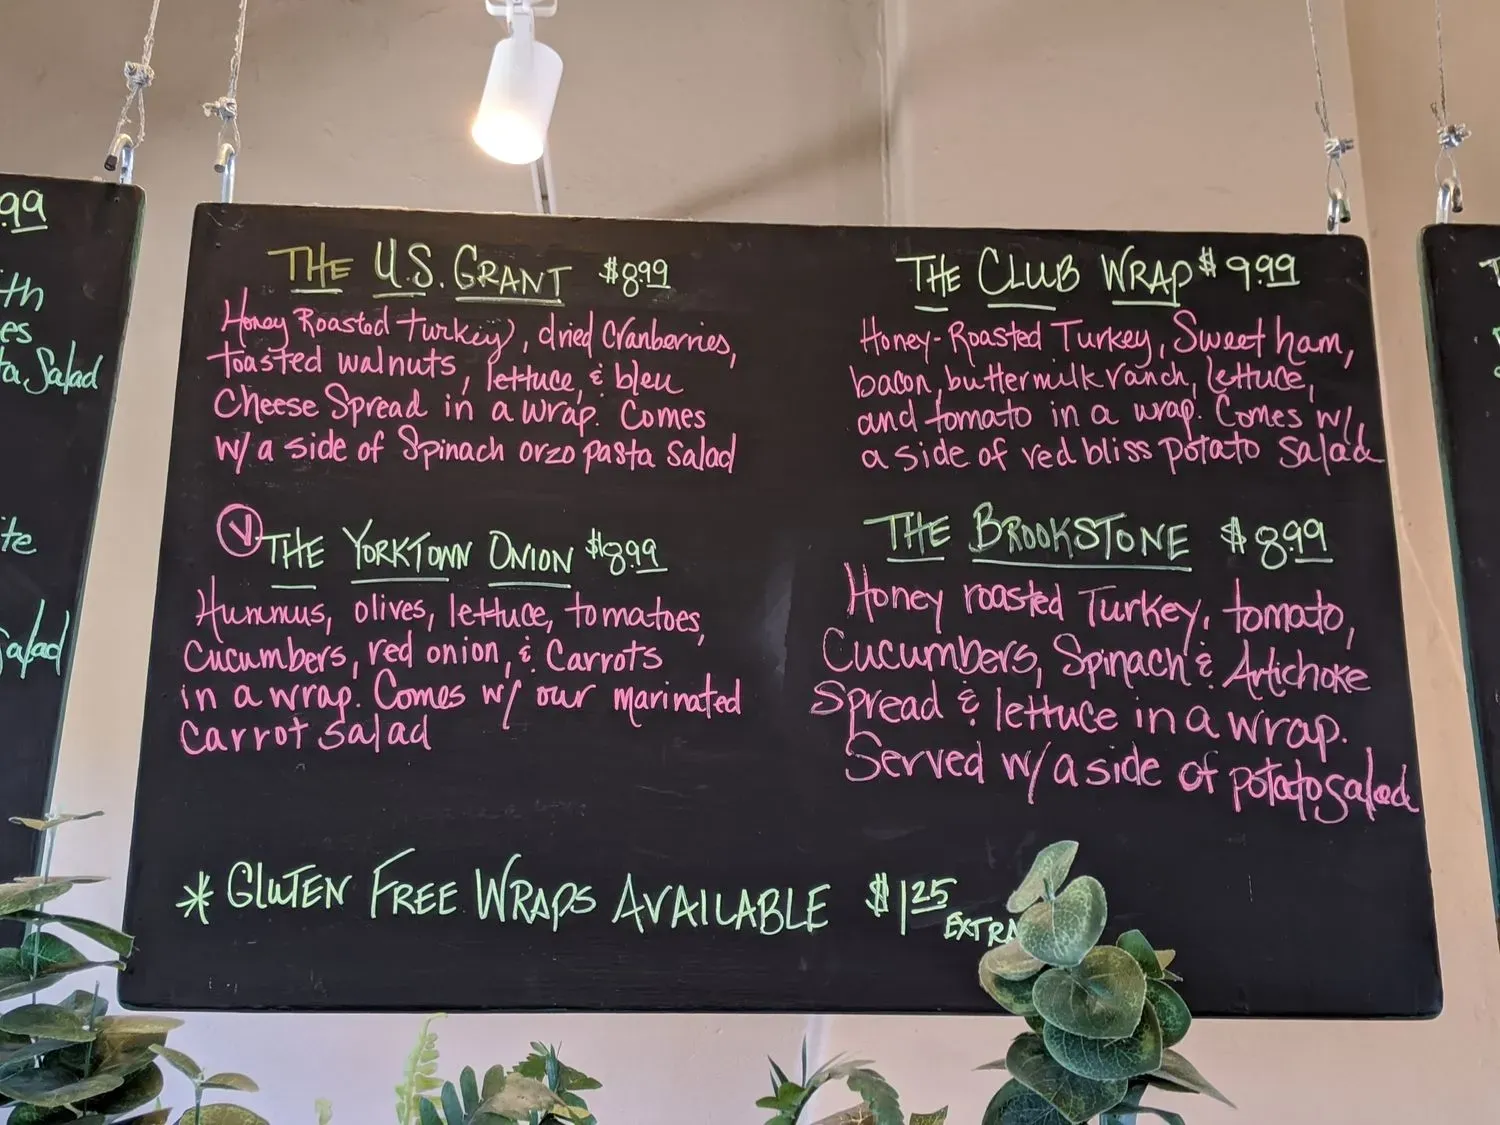 .99
th
es
ta Salad
te
Salad
THE U.S. GRANT $8.99
Honey Roasted turkey, dried Cranberries,
toasted walnuts, lettuce, & bleu
Cheese Spread in a wrap. Comes
w/ a side of Spinach orzo pasta Salad
V THE YORKTOWN ONION $8.99
Hummus, olives, lettuce, tomatoes,
Cucumbers, red onion, & Carrots
in a wrap. Comes w/ our marinated
Carrot Salad
THE CLUB WRAP $9.99
Honey-Roasted Turkey, Sweet ham,
bacon, buttermilk ranch, lettuce,
and tomato in a wrap. Comes w/
a side of red bliss potato Salad
THE BROOKSTONE $8.99
Honey roasted Turkey, tomato,
Cucumbers, Spinach & Artichoke
Spread & lettuce in a wrap.
Served w/ a side of potato salad
* GLUTEN FREE WRAPS AVAILABLE $1.25
EXTRA